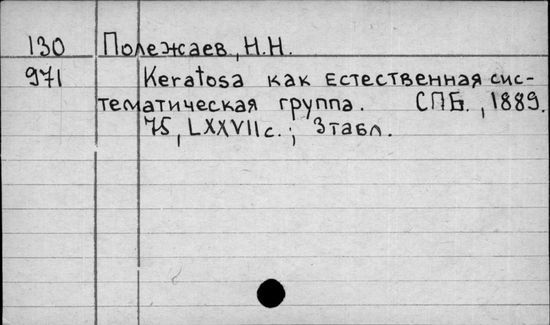 130 Полежаев, Н.Н.
971 Keratosa как естественная сис-
тематическая группа. СПБ., 1889.
75, LXXVII с.; 3 табл.